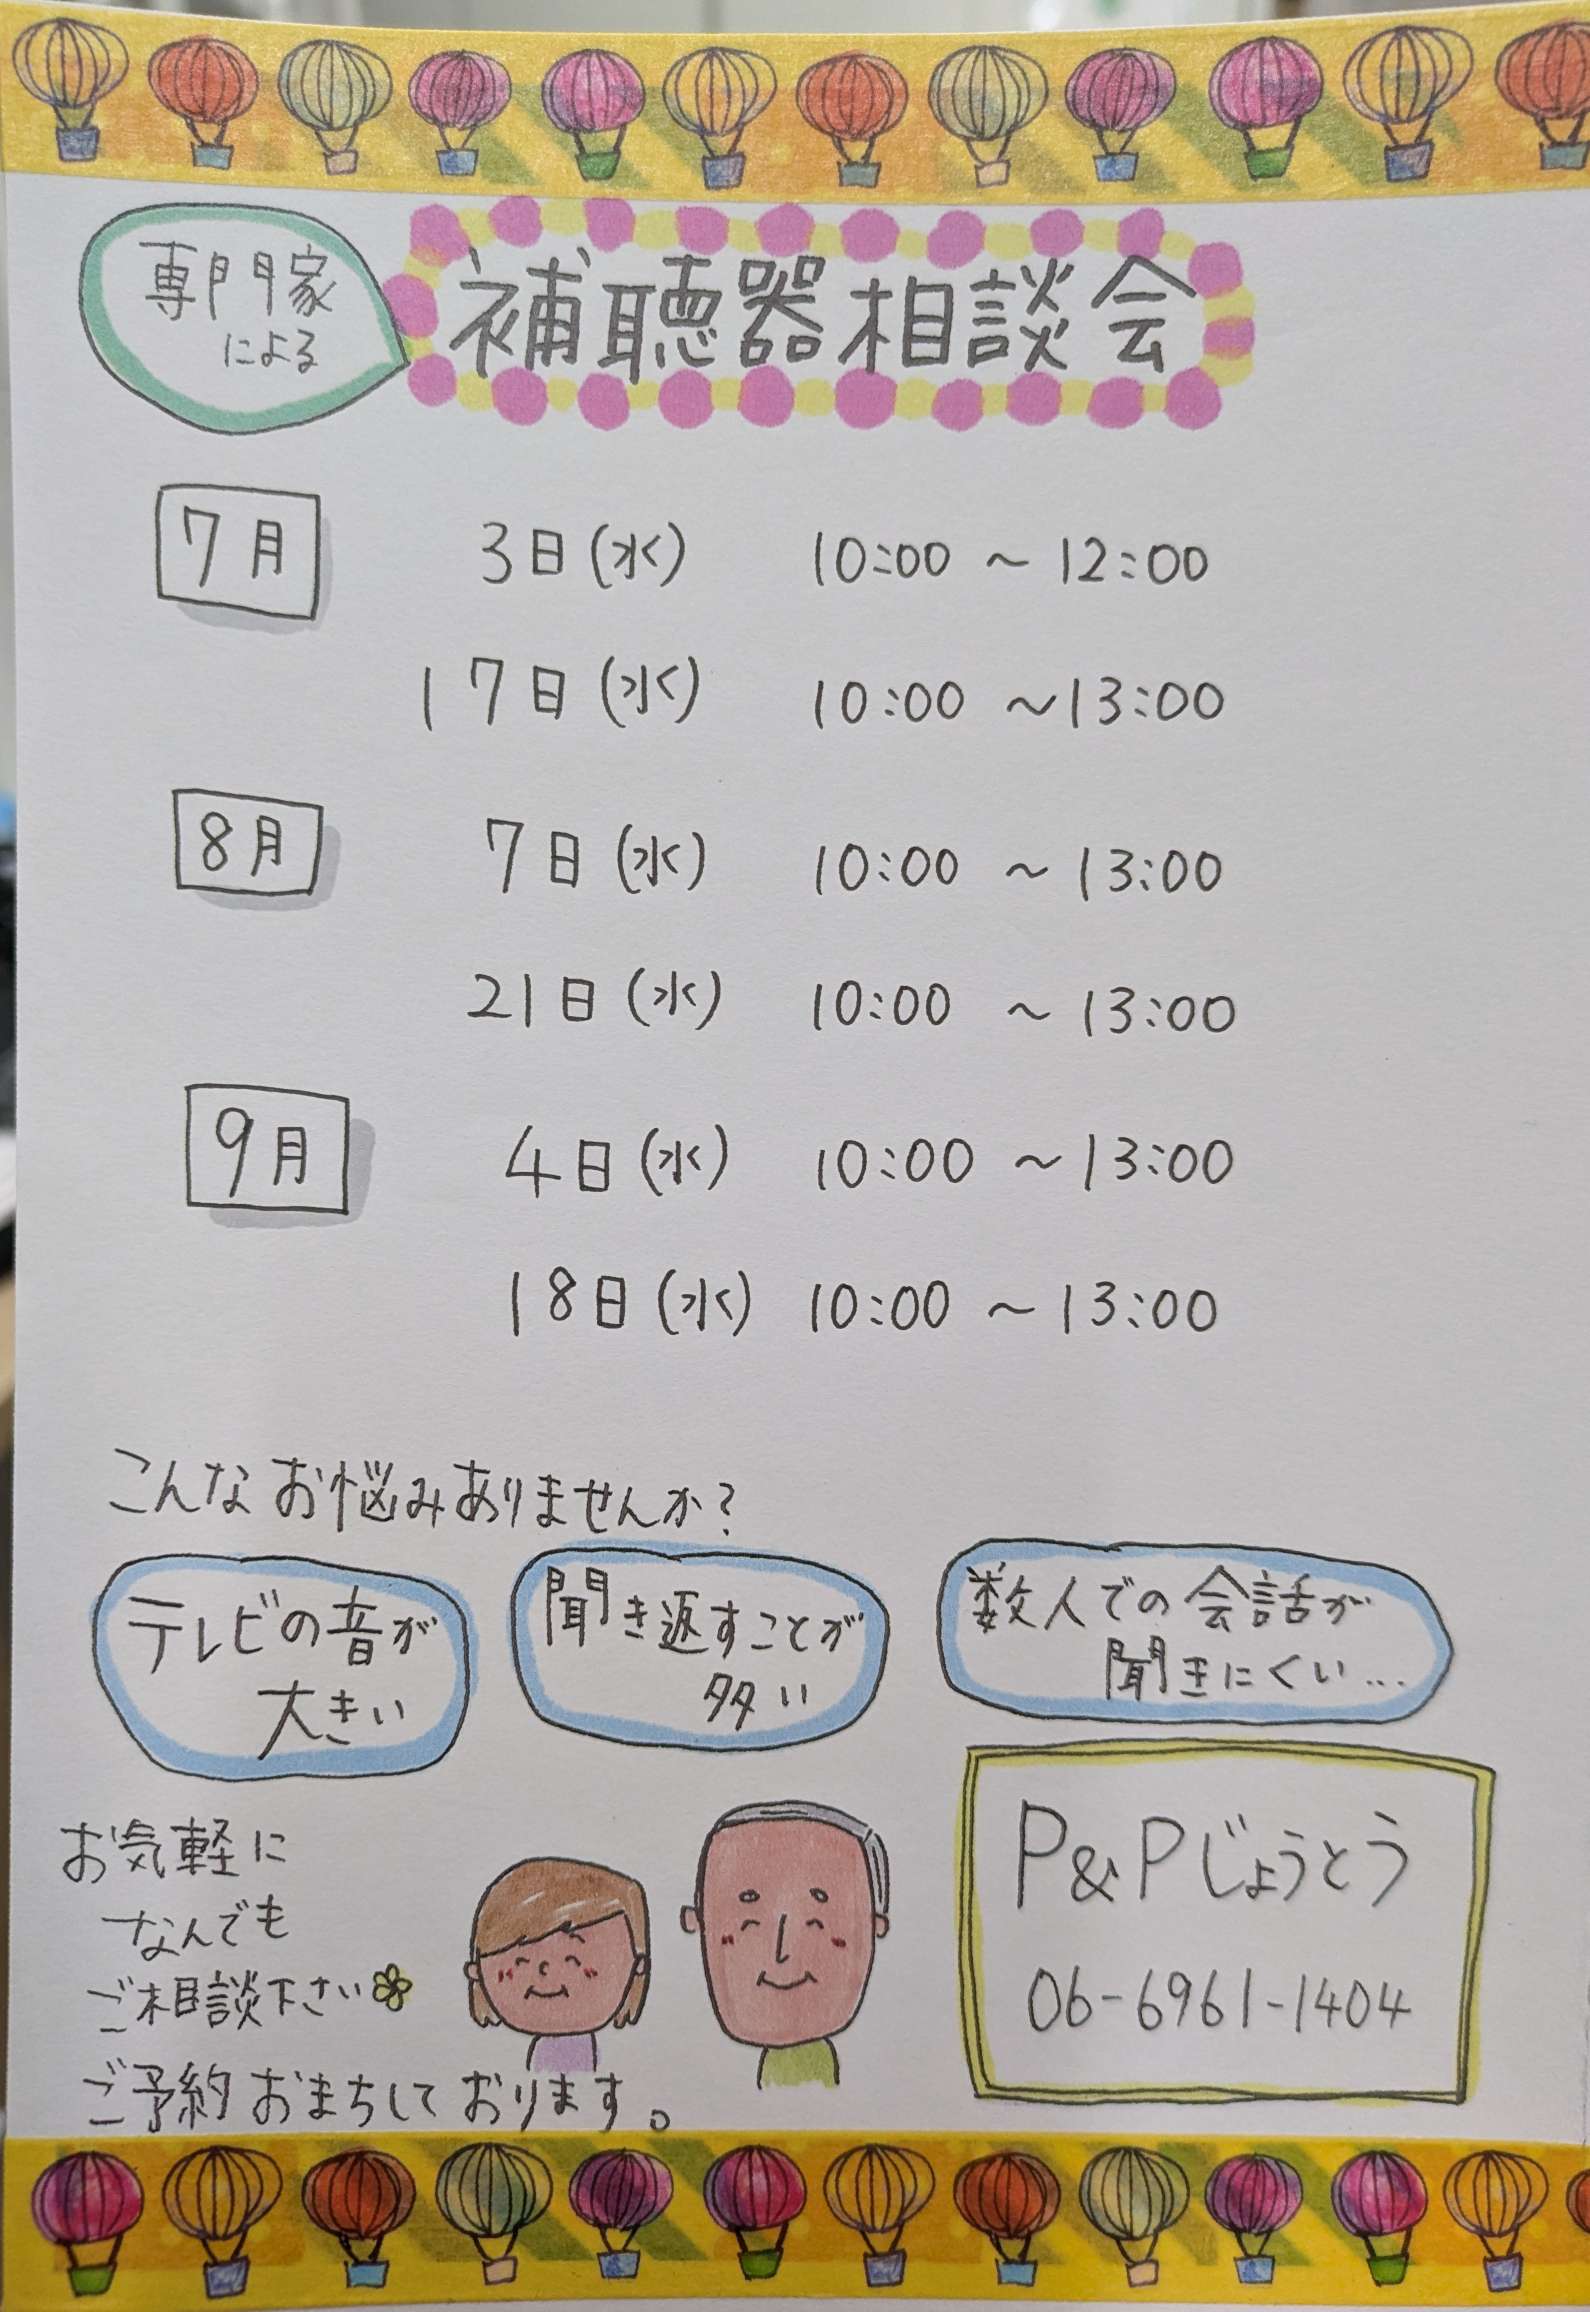 専門家
による
補聴器相談会
7月 3日(水) 10:00 ～ 12:00
17日(水) 10:00 ～13:00
8月 7日(水) 10:00 ～ 13:00
21日(水) 10:00 ～ 13:00
9月 4日(水) 10:00 ～ 13:00
18日(水) 10:00 ～ 13:00
こんなお悩みありませんか?
テレビの音が
大きい
聞き返すことが
多い
数人での会話が
聞きにくい…
お気軽に
なんでも
ご相談下さい
ご予約おまちしております。
P&Pじょうとう
06-6961-1404